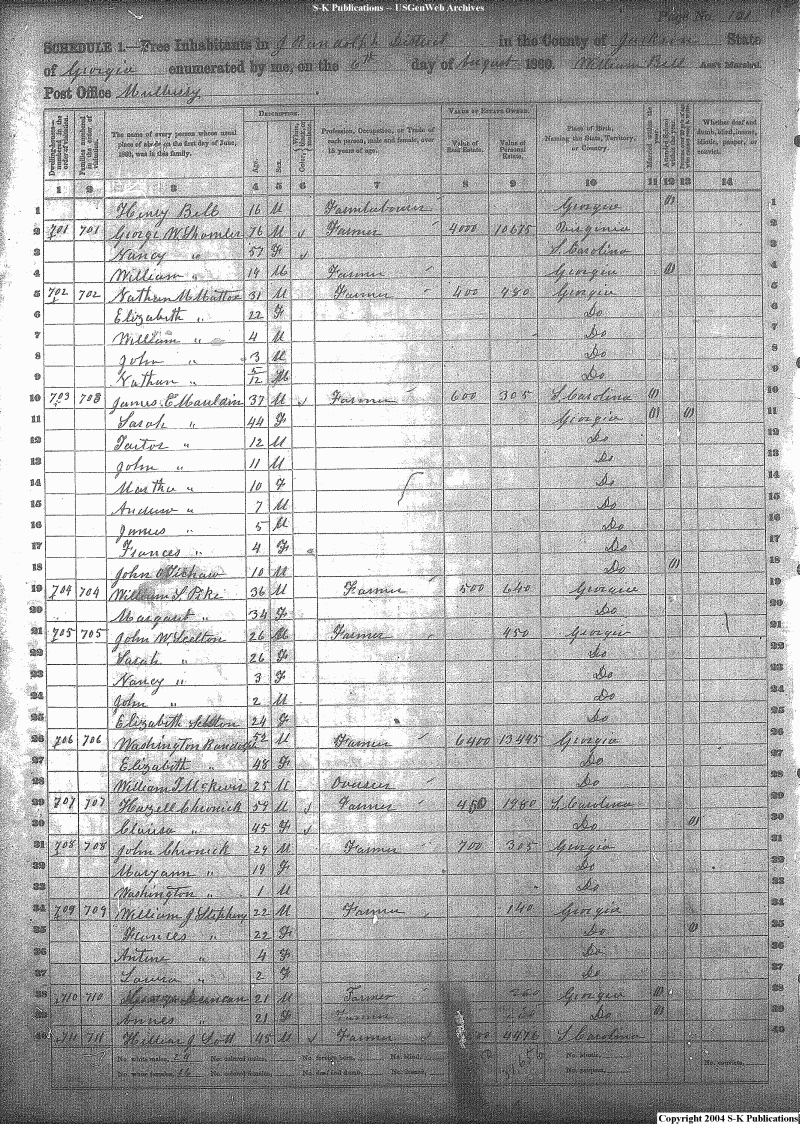 S-K Publications -- USGenWeb Archives
Page No. 101
SCHEDULE 1.—Free Inhabitants in J Randolph District in the County of Jackson State
of Georgia enumerated by me, on the 6th day of August 1860. William Bell Ass't Marshal.
Post Office Mulberry
DESCRIPTION. VALUE OF ESTATE OWNED.
Dwelling-houses—numbered in the order of visitation. Families numbered in the order of visitation. The name of every person whose usual place of abode on the first day of June, 1860, was in this family. Age. Sex. Color, Profession, Occupation, or Trade of each person, male and female, over 15 years of age. Value of Real Estate. Value of Personal Estate. Place of Birth, Naming the State, Territory, or Country. Married within the year. Attended School within the year. Whether deaf and dumb, blind, insane, idiotic, pauper, or convict.
1 2 3 4 5 6 7 8 9 10 11 12 13 14
1 Henry Bell 16 M Farmlabourer Georgia (1) 1
2 701 701 George W Shamler 76 M Farmer 4000 10675 Virginia 2
3 Nancy " 57 F S. Carolina 3
4 William " 19 M Farmer Georgia (1) 4
5 702 702 Nathan M Mattox 31 M Farmer 400 480 Georgia 5
6 Elizabeth " 22 F Do 6
7 William " 4 M Do 7
8 John " 3 M Do 8
9 Nathan " 5/12 M Do 9
10 703 703 James E Mauldin 37 M Farmer 600 305 S. Carolina (1) 10
11 Sarah " 44 F Georgia (1) (1) 11
12 " 12 M Do 12
13 John " 11 M Do 13
14 Martha " 10 F Do 14
15 Andrew " 7 M Do 15
16 James " 5 M Do 16
17 Frances " 4 F Do 17
18 John 10 M Do (1) 18
19 704 704 William S Pike 36 M Farmer 500 640 Georgia 19
20 Margaret " 34 F Do 20
21 705 705 John W Scelton 26 M Farmer 450 Georgia 21
22 Sarah " 26 F Do 22
23 Nancy " 3 F Do 23
24 John " 2 M Do 24
25 Elizabeth Scelton 24 F Do 25
26 706 706 Washington Randolph 52 M Farmer 6400 13445 Georgia 26
27 Elizabeth " 48 F Do 27
28 William 25 M Overseer Do 28
29 707 707 Hazell Chronick 59 M Farmer 450 1980 S. Carolina 29
30 Clarisa " 45 F Do (1) 30
31 708 708 John Chronick 29 M Farmer 700 305 Georgia 31
32 Maryann " 19 F Do 32
33 Washington " 1 M Do 33
34 709 709 William J Stephens 22 M Farmer 140 Georgia 34
35 Frances " 22 F Do (1) 35
36 Antine " 4 F Do 36
37 Lawra " 2 F Do 37
38 710 710 Duncan 21 M Farmer Georgia (1) 38
39 Annes " 21 F Do (1) 39
40 711 711 William J Lott 45 M Farmer 4476 S. Carolina 40
No. white males, 24 No. colored males, No. foreign born, No. blind, No. idiotic, No. convicts,
No. white females, 16 No. colored females, No. deaf and dumb, No. insane, No. paupers,
Copyright 2004 S-K Publications